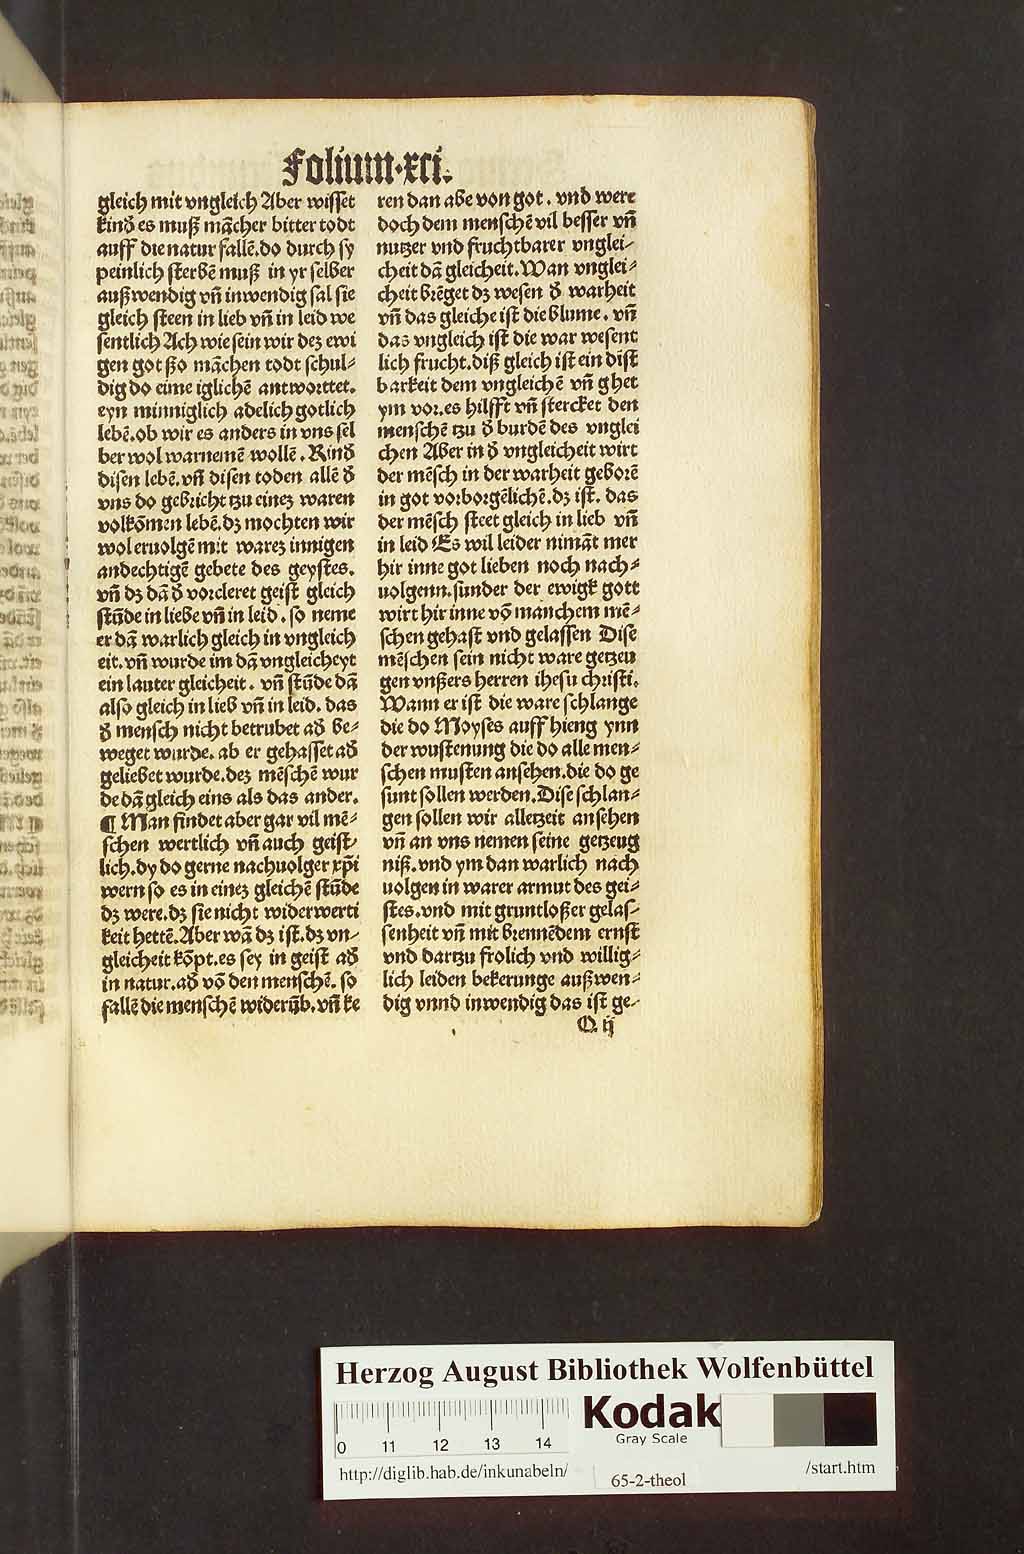 Folium·xci.
gleich mit vngleich Aber wisset
kinđ es muß mācher bitter todt
auff die natur fallē. do durch sy
peinlich sterbē muß in yr selber
außwendig vn̄ inwendig sal sie
gleich steen in lieb vn̄ in leid we
sentlich Ach wie sein wir deʒ ewi
gen got ßo māchen todt schul⸗
dig do eime iglichē antworttet.
eyn minniglich adelich gotlich
lebē. ob wir es anders in vns sel
ber wol warnemē wollē. Kinđ
disen lebē. vn̄ disen toden allē đ
vns do gebricht tzu eineʒ waren
volkōmen lebē. dʒ mochten wir
wol eruolgē mit wareʒ innigen
andechtigē gebete des geystes.
vn̄ dʒ dā đ vorcleret geist gleich
stūde in liebe vn̄ in leid. so neme
er dā warlich gleich in vngleich
eit. vn̄ wurde im dā vngleicheyt
ein lauter gleicheit. vn̄ stūde dā
also gleich in lieb vn̄ in leid. das
đ mensch nicht betrubet ađ be⸗
weget wurde. ab er gehasset ađ
geliebet wurde. deʒ mēschē wur
de dā gleich eins als das ander.
¶ Man findet aber gar vil mē⸗
schen wertlich vn̄ auch geist⸗
lich. dy do gerne nachuolger xp̄i
wern so es in eineʒ gleichē stūde
dʒ were. dʒ sie nicht widerwerti
keit hettē. Aber wā dʒ ist. dʒ vn⸗
gleicheit kōpt. es sey in geist ađ
in natur. ađ vō den menschē. so
fallē die menschē widerūb. vn̄ ke
ren dan abe von got. vnd were
doch dem menschē vil besser vn̄
nutzer vnd fruchtbarer vnglei⸗
cheit dā gleicheit. Wan vnglei⸗
cheit brēget dʒ wesen đ warheit
vn̄ das gleiche ist die blume. vn̄
das vngleich ist die war wesent
lich frucht. diß gleich ist ein dist
barkeit dem vngleichē vn̄ ghet
ym vor. es hilfft vn̄ stercket den
menschē tzu đ burdē des vnglei
chen Aber in đ vngleicheit wirt
der mēsch in der warheit geborē
in got vorborgēlichē. dʒ ist. das
der mēsch steet gleich in lieb vn̄
in leid Es wil leider nimāt mer
hir inne got lieben noch nach⸗
uolgenn. sunder der ewigk gott
wirt hir inne vō manchem mē⸗
schen gehast vnd gelassen Dise
mēschen sein nicht ware getzeu
gen vnßers herren ihesu christi.
Wann er ist die ware schlange
die do Moyses auff hieng ynn
der wustenung die do alle men⸗
schen musten ansehen. die do ge
sunt sollen werden. Dise schlan⸗
gen sollen wir alletzeit ansehen
vn̄ an vns nemen seine getzeug
niß. vnd ym dan warlich nach
uolgen in warer armut des gei⸗
stes. vnd mit gruntloßer gelas⸗
senheit vn̄ mit brennēdem ernst
vnd dartzu frolich vnd willig⸗
lich leiden bekerunge außwen⸗
dig vnnd inwendig das ist ge⸗
O. ij
Herzog August Bibliothek Wolfenbüttel
0 11 12 13 14
Kodak
Gray Scale
http://diglib.hab.de/inkunabeln/
65-2-theol
/start.htm